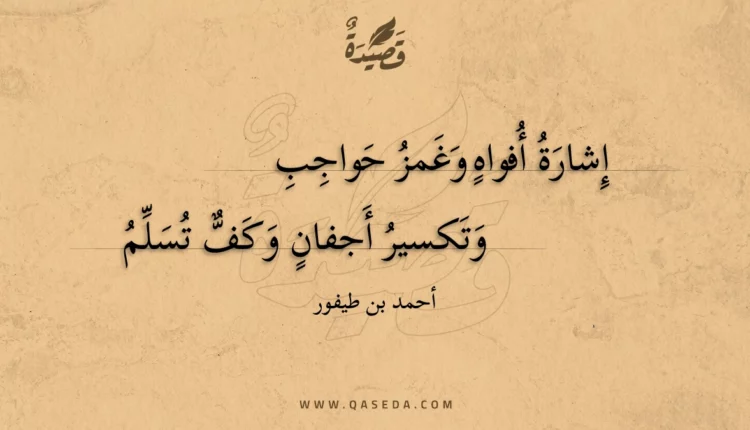 قَصِيدَةٌ
إِشارَةُ أَفواهٍ وَغَمزُ حَواجِبِ
وَتَكسيرُ أَجفانٍ وَكَفٌّ تُسَلِّمُ
أحمد بن طيفور
WWW.QASEDA.COM